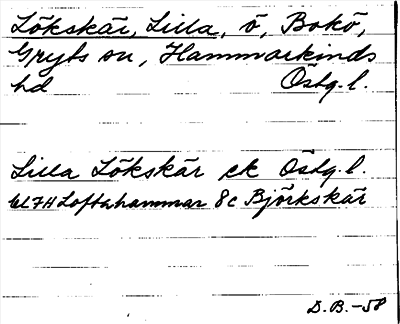 Lökskär, Lilla, ö, Bokö,
Gryts sn, Hammarkinds
hd Östg.l.
Lilla Lökskär ek Östg.l.
bl 7H Loftahammar 8c Björkskär
D.B.-58